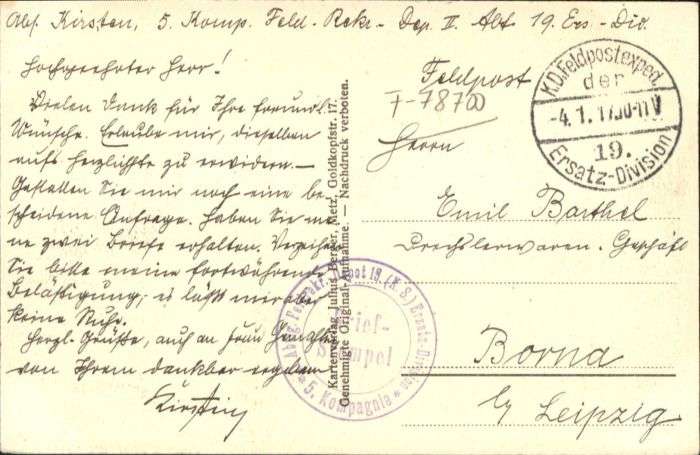 Abs. Kirsten, 5. Komp. Feld-Rekr.-Dep. II. Abt 19. Ers.-Div.
Hochgeehrter Herr!
Vielen Dank für Ihre freundl.
Wünsche. Erlaube mir, dieselben
aufs herzlichste zu erwidern. —
Gestatten Sie mir noch eine be-
scheidene Anfrage. Haben Sie mei-
ne zwei Briefe erhalten. Verzeihen
Sie bitte meine fortwährende
Belästigung; es läßt mir aber
keine Ruhe.
Herzl. Grüße, auch an Frau
von Ihrem dankbar ergebenen
Kirsten
Kartenverlag Julius Berger, Metz, Goldkopfstr. 17.
Genehmigte Original-Aufnahme. — Nachdruck verboten.
Feldpost
7-78700
K.D.Feldpostexped.
der
-4.1.17
19.
Ersatz-Division
Herrn
Emil Barthel
Drechslerwaren-Geschäft
Borna
b/ Leipzig
Brief-
Stempel
5. Kompagnie